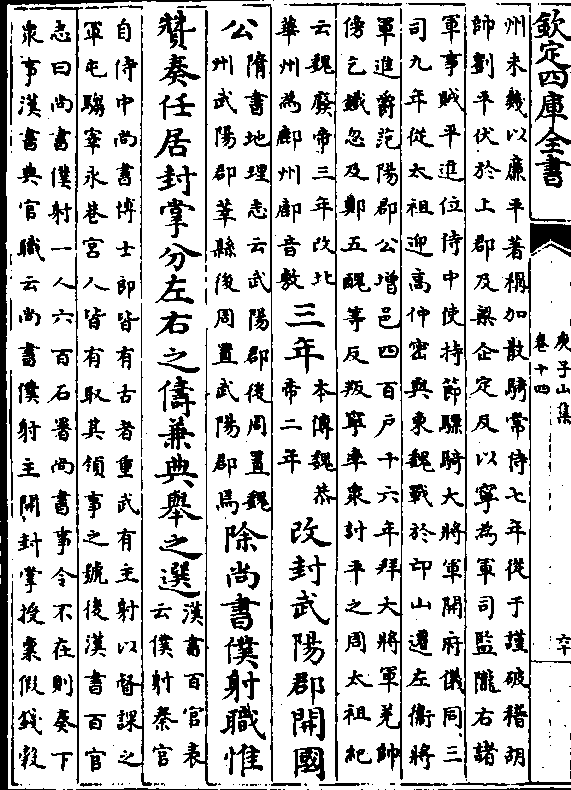 欽定四庫全書
庾子山集
卷十四
六十
州未幾以廉平著稱加散騎常侍七年從于謹破稽胡
帥劉平伏於上郡及梁企定反以寧為軍司監隴右諸
軍事賊平進位侍中使持節驃騎大將軍開府儀同三
司九年從太祖迎高仲密與東魏戰於邙山遷左衛將
軍進爵范陽郡公增邑四百戶十六年拜大將軍羌帥
傍乞鐵忽及鄭五醜等反叛寧率衆討平之周太祖紀
云魏廢帝三年改北
華州為鄜州鄜音敷
三年
本傳魏恭
帝二年
改封武陽郡開國
公
隋書地理志云武陽郡後周置魏
州武陽郡莘縣後周置武陽郡焉
除尚書僕射職惟
贊奏任居封掌分左右之儔兼典舉之選
漢書百官表
云僕射秦官
自侍中尚書博士郎皆有古者重武有主射以督課之
軍屯騶宰永巷宮人皆有取其領事之號後漢書百官
志曰尚書僕射一人六百石署尚書事令不在則奏下
衆事漢書典官職云尚書僕射主開封掌授稟假錢穀